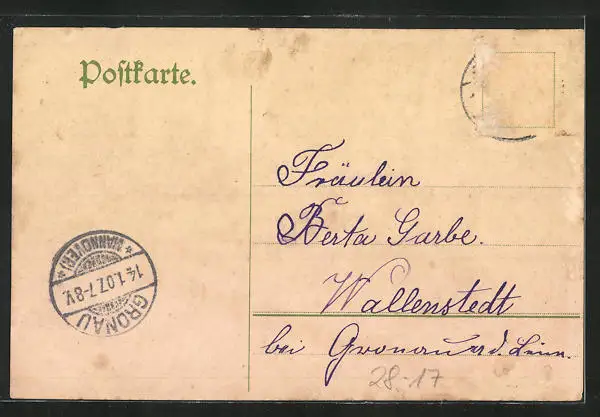 Postkarte.
Fräulein
Berta Garbe.
Wallenstedt
bei Gronau a. d. Leine.
28-17
GRONAU
14.1.07.7-8V.
* (HANNOVER) *